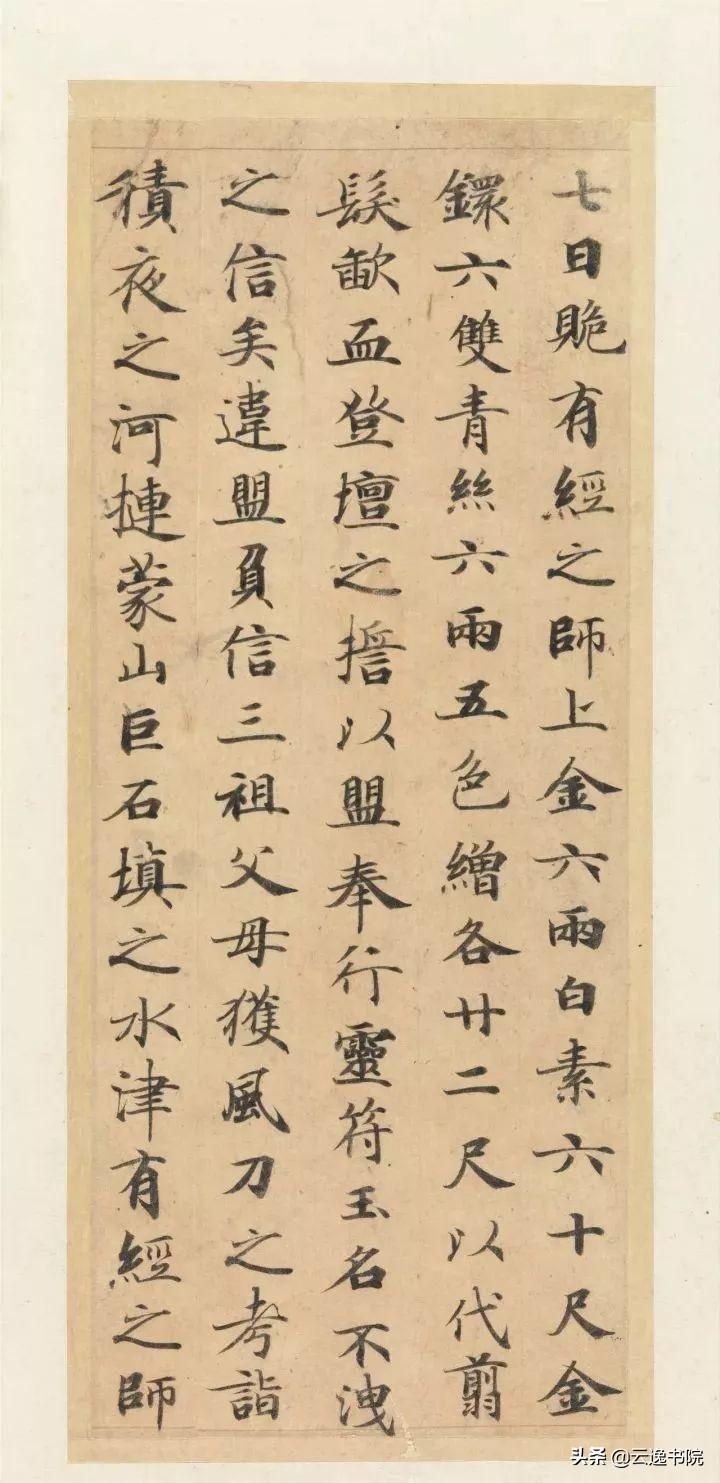 七日賍有經之師上金六兩白素六十尺金
鐶六雙青絲六兩五色繒各廿二尺以代翦
髮歃血登壇之擔以盟奉行靈符玉名不洩
之信矣違盟負信三祖父母獲風刀之考詣
積夜之河摙蒙山巨石填之水津有經之師
头条@云逸书院